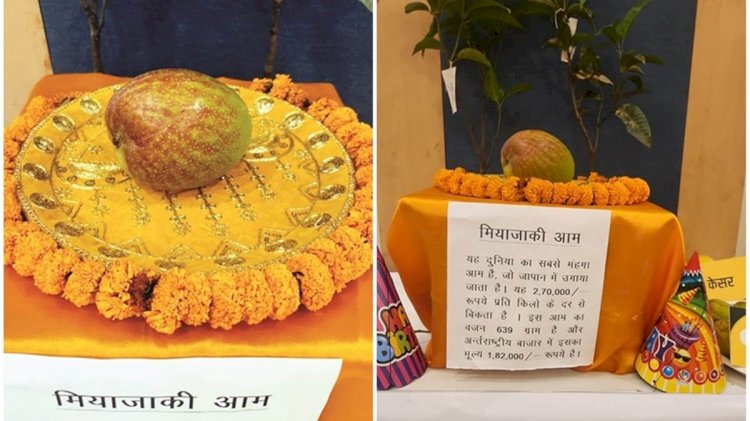 मियाजाकी आम
मियाजाकी आम
यह दुनिया का सबसे मंहगा
आम है, जो जापान में उगाया
जाता है। यह 2,70,000/–
रूपये प्रति किलो के दर से
बिकता है । इस आम का
वजन 639 ग्राम है और
अर्न्तराष्ट्रीय बाजार में इसका
मूल्य 1,82,000/– रूपये है।
केसर